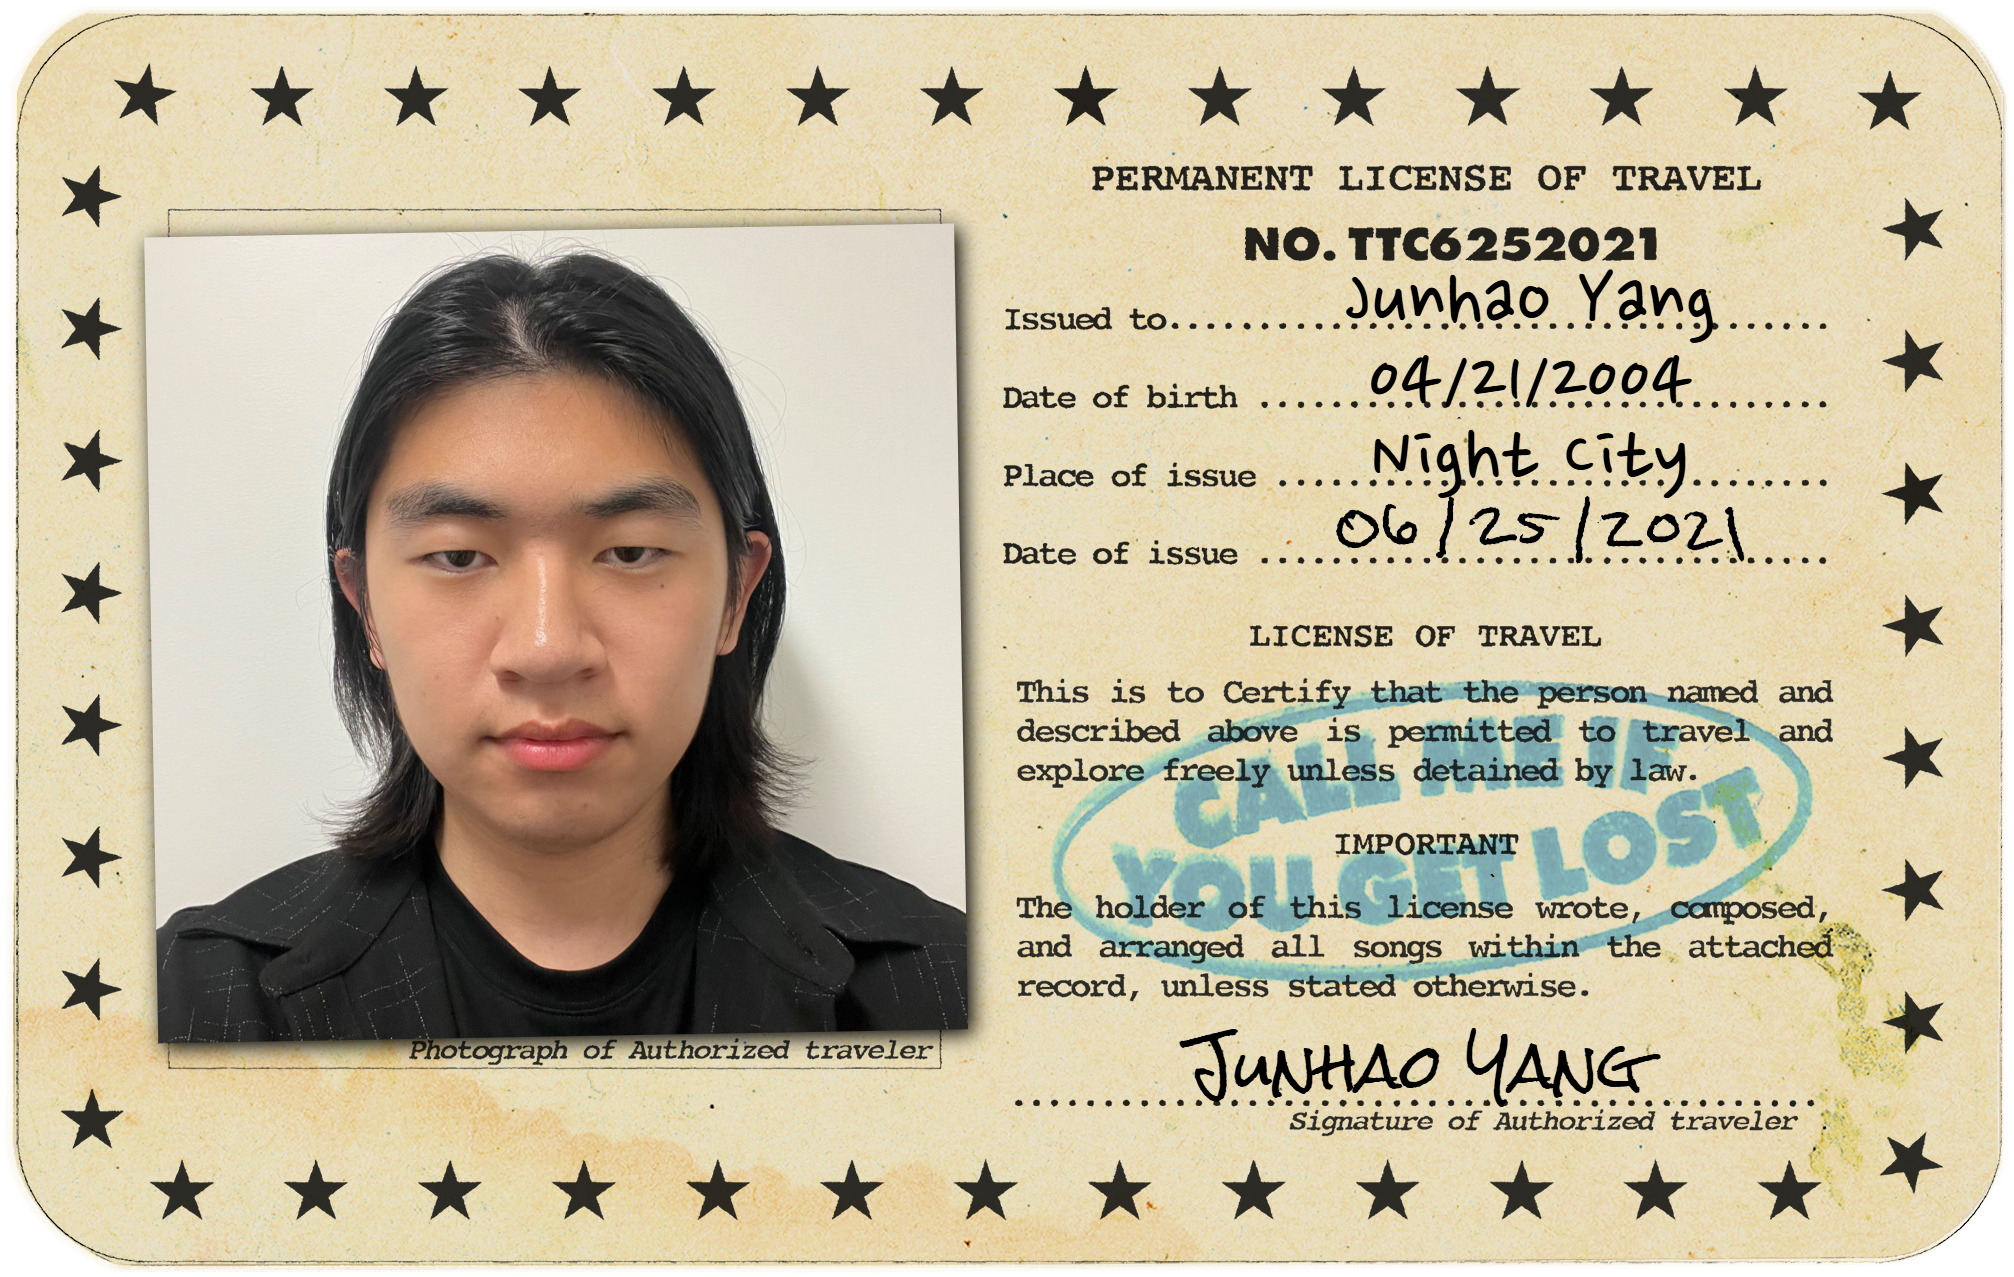 PERMANENT LICENSE OF TRAVEL
NO. TTC6252021
Issued to.......Junhao Yang.......
Date of birth .......04/21/2004.......
Place of issue .......Night City.......
Date of issue .......06/25/2021.......
LICENSE OF TRAVEL
This is to Certify that the person named and
described above is permitted to travel and
explore freely unless detained by law.
CALL ME IF
YOU GET LOST
IMPORTANT
The holder of this license wrote, composed,
and arranged all songs within the attached
record, unless stated otherwise.
JUNHAO YANG
Signature of Authorized traveler
Photograph of Authorized traveler